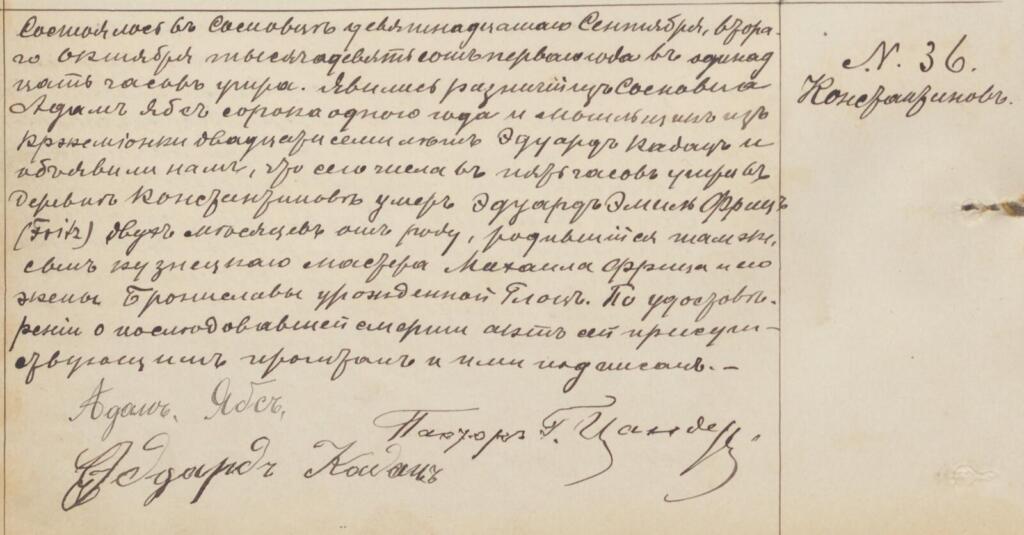 Состоялось въ Сосновцѣ девятнадцатаго Сентября, второ-
го Октября тысяча девятьсотъ перваго года въ одинад
цать часовъ утра. Явились различій изъ Сосновца
Адамъ Ябсъ сорока одного года и могильщикъ изъ
Кржеміонки двадцати семи лѣтъ Эдуардъ Кабацъ и
объявили намъ, что сего числа въ пять часовъ утра въ
деревнѣ Константиновъ умеръ Эдуардъ Эмиль Фрицъ
(Fritz) двухъ мѣсяцевъ отъ роду, родившійся тамже,
сынъ кузнецкаго мастера Михаила Фрица и его
жены Брониславы урожденной Глоцъ. По удостовѣ-
реніи о послѣдовавшей смерти актъ сей присут-
ствующимъ прочтанъ и ими подписанъ. —
Адамъ. Ябсъ.
Пасторъ Г. Цандеръ.
Эдуардъ Кабацъ
N. 36.
Константиновъ.